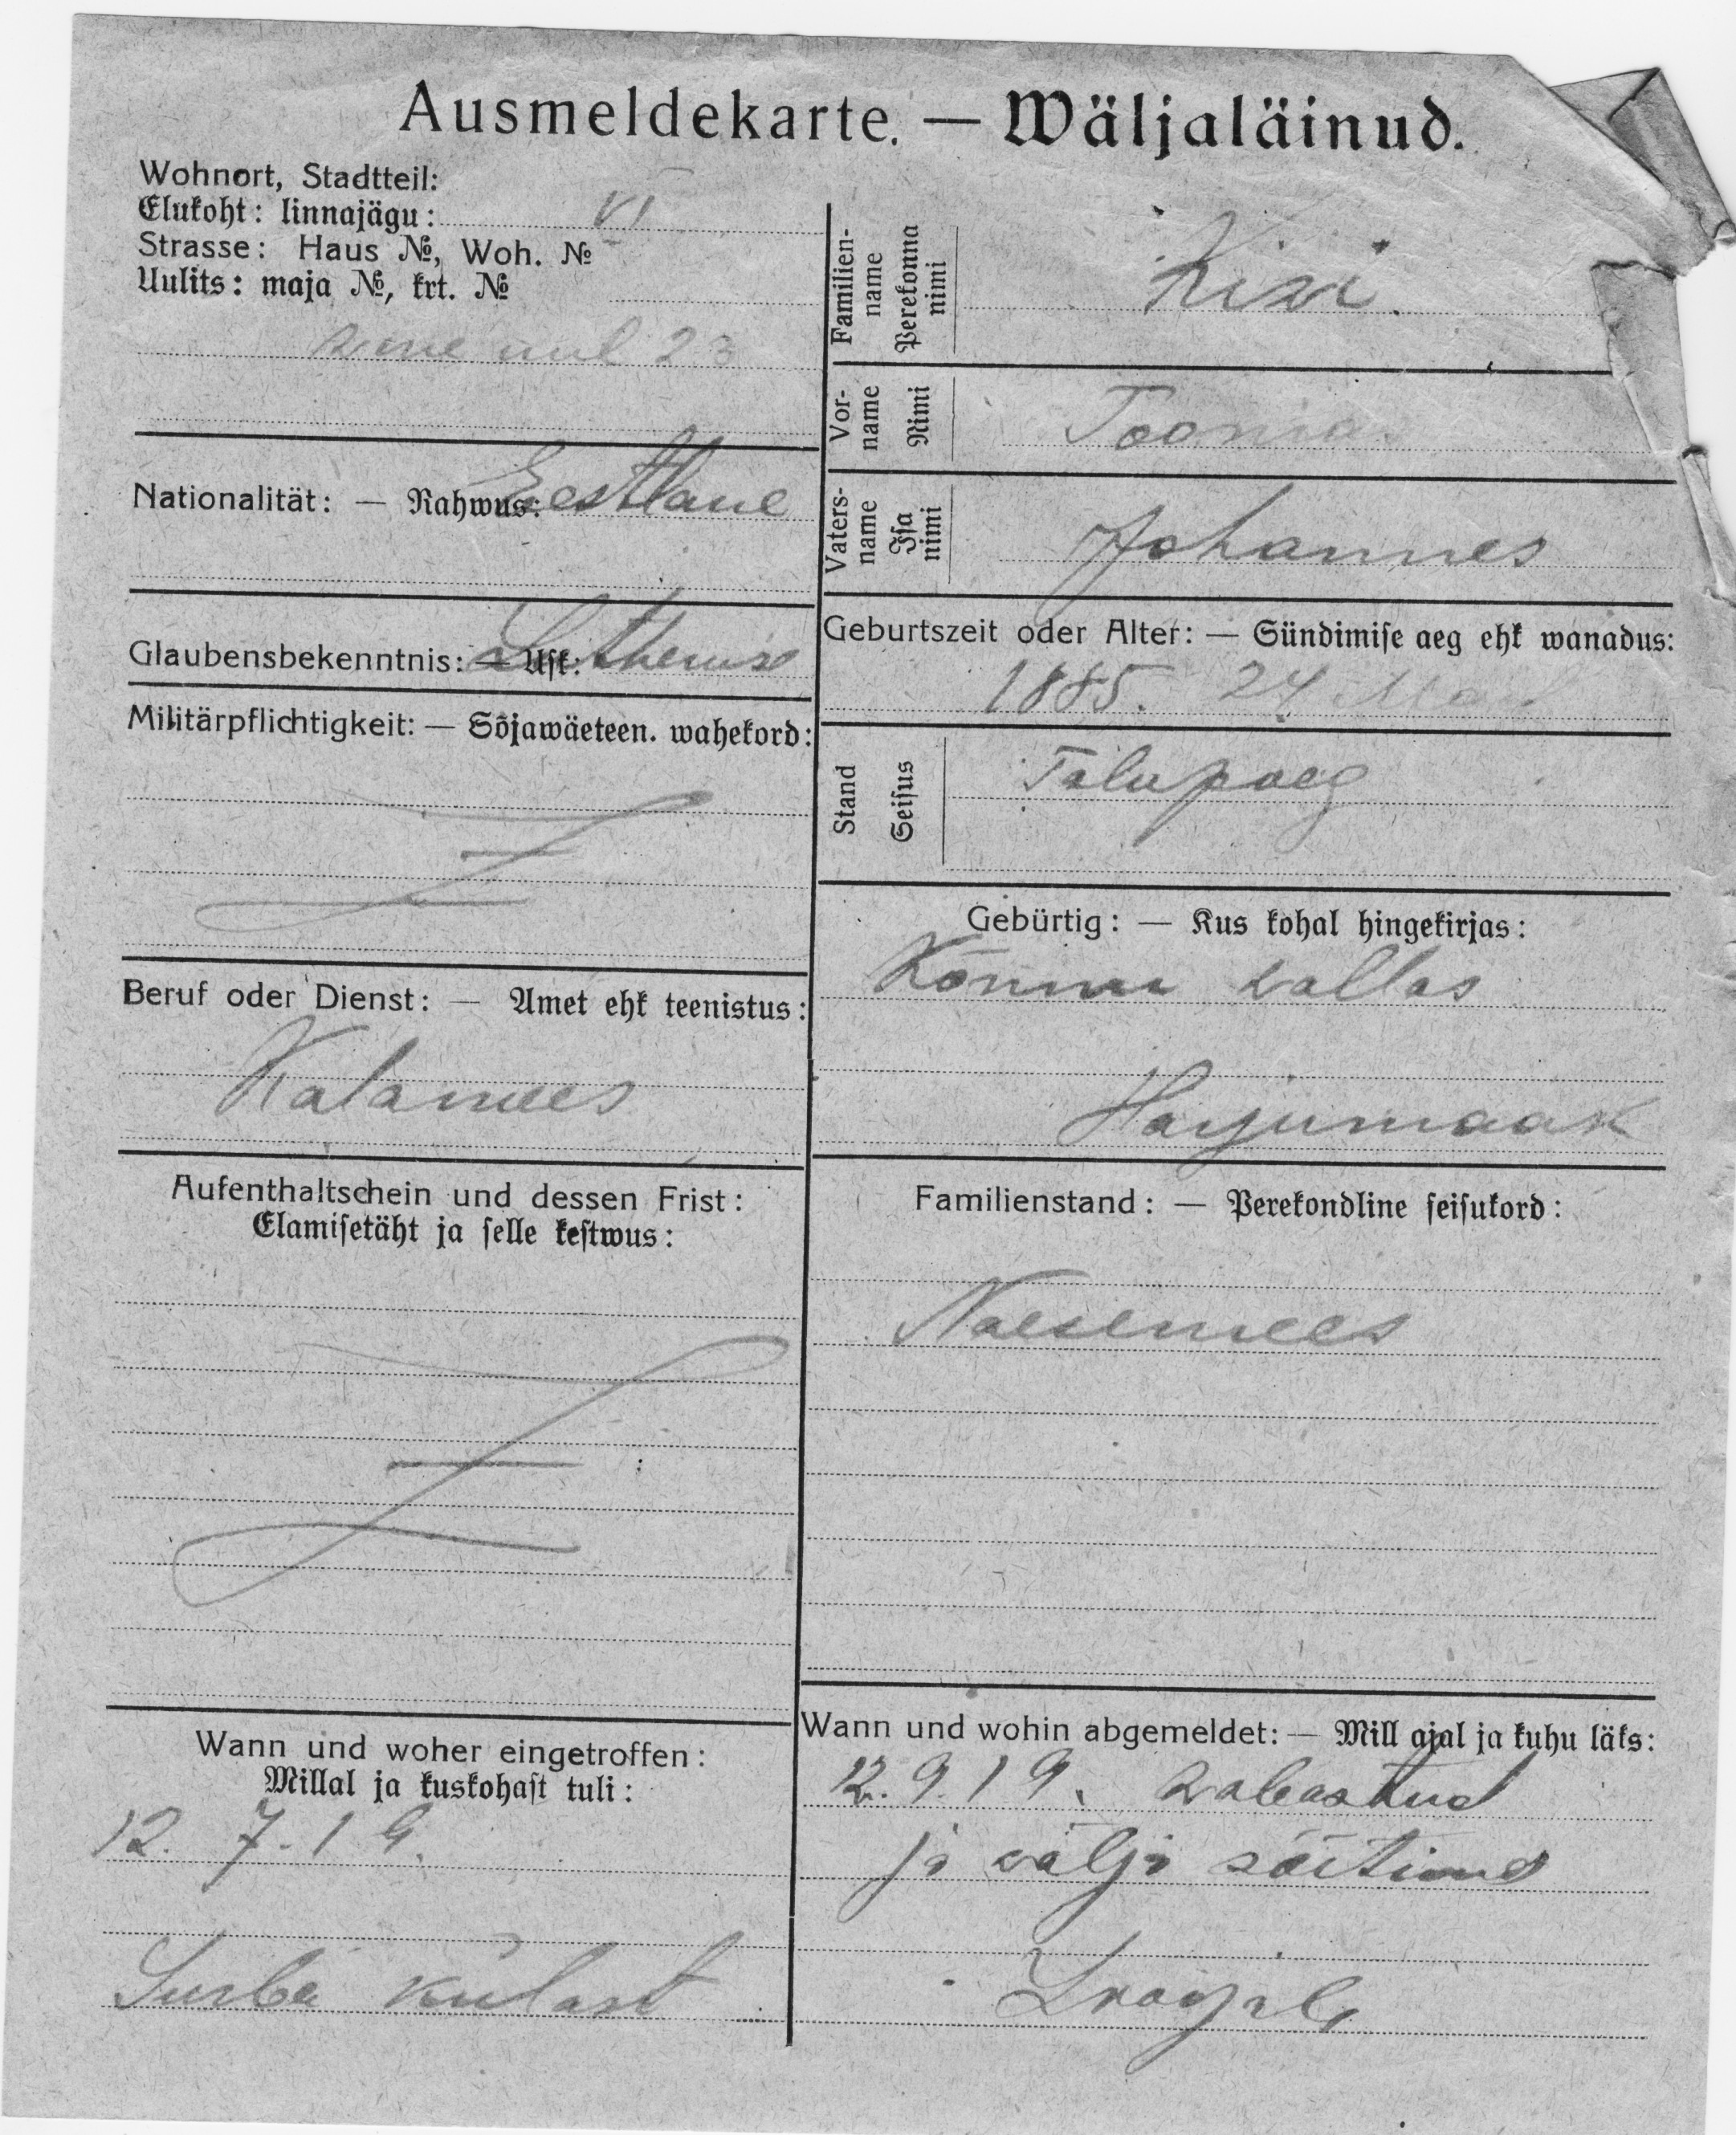 Ausmeldekarte. — Wäljaläinud.
Wohnort, Stadtteil:
Elukoht: linnajägu: VI
Strasse: Haus №, Woh. №
Uulits: maja №, krt. №
uul 23
Nationalität: — Rahwus: Eestlane
Glaubensbekenntnis: — Usk: Lutheruse
Militärpflichtigkeit: — Sõjawäeteen. wahekord:
Beruf oder Dienst: — Amet ehk teenistus:
Kalamees
Aufenthaltschein und dessen Frist:
Elamisetäht ja selle kestwus:
Wann und woher eingetroffen:
Millal ja kuskohast tuli:
12. 7. 19.
külast
Familien-
name
Perekonna
nimi
Kiwi.
Vor-
name
Nimi
Toomas
Vaters-
name
Isa
nimi
Johannes
Geburtszeit oder Alter: — Sündimise aeg ehk wanadus:
1885. 24 Mai
Stand
Seisus
Talupoeg
Gebürtig: — Kus kohal hingekirjas:
Kõnnu wallas
Harjumaak
Familienstand: — Perekondline seisukord:
Naesemees
Wann und wohin abgemeldet: — Mill ajal ja kuhu läks:
12. 9. 19. wabastud
ja välja sõitnud